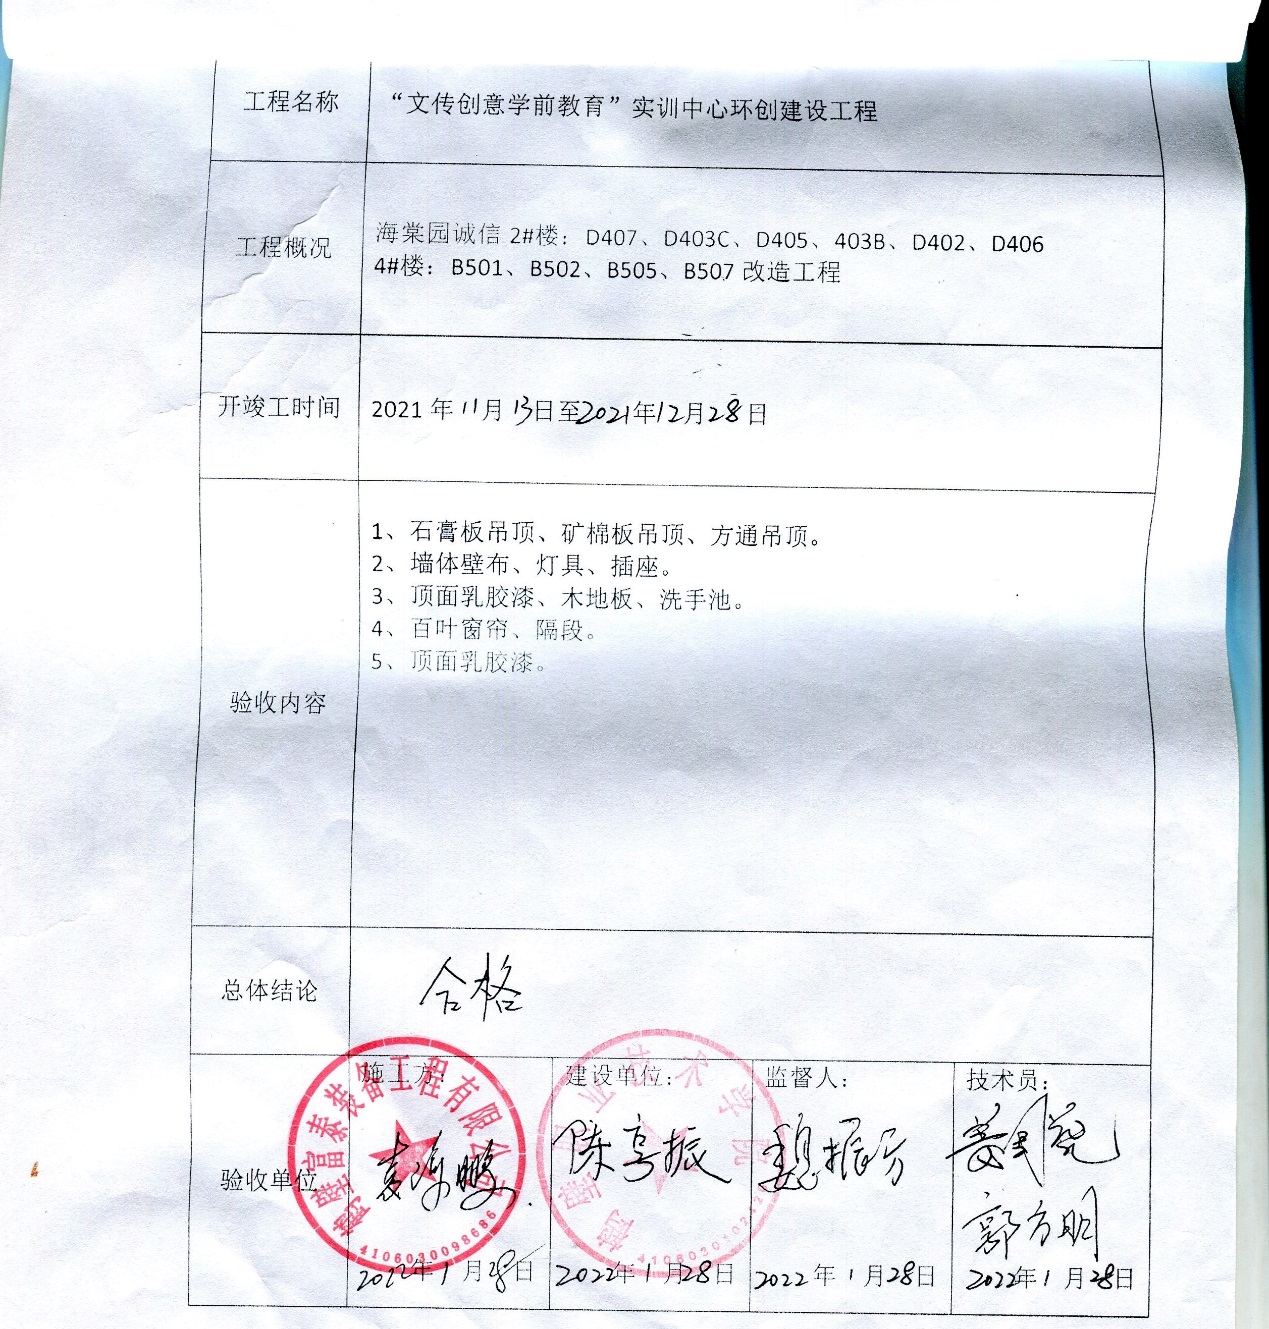 工程名称
“文传创意学前教育”实训中心环创建设工程
工程概况
海棠园诚信 2#楼：D407、D403C、D405、403B、D402、D406
4#楼：B501、B502、B505、B507 改造工程
开竣工时间
2021 年 11月 13日至2021年12月28日
验收内容
1、石膏板吊顶、矿棉板吊顶、方通吊顶。
2、墙体壁布、灯具、插座。
3、顶面乳胶漆、木地板、洗手池。
4、百叶窗帘、隔段。
5、顶面乳胶漆。
总体结论
合格
验收单位
施工方：
鹏
鹤壁富泰装备工程有限公司
4106030098686
2022年 1 月 28日
建设单位：
陈亨振
鹤壁 业技术学院
2022年 1月28日
监督人：
魏振芳
2022 年 1月28日
技术员：
郭方明
2022年 1 月 28日